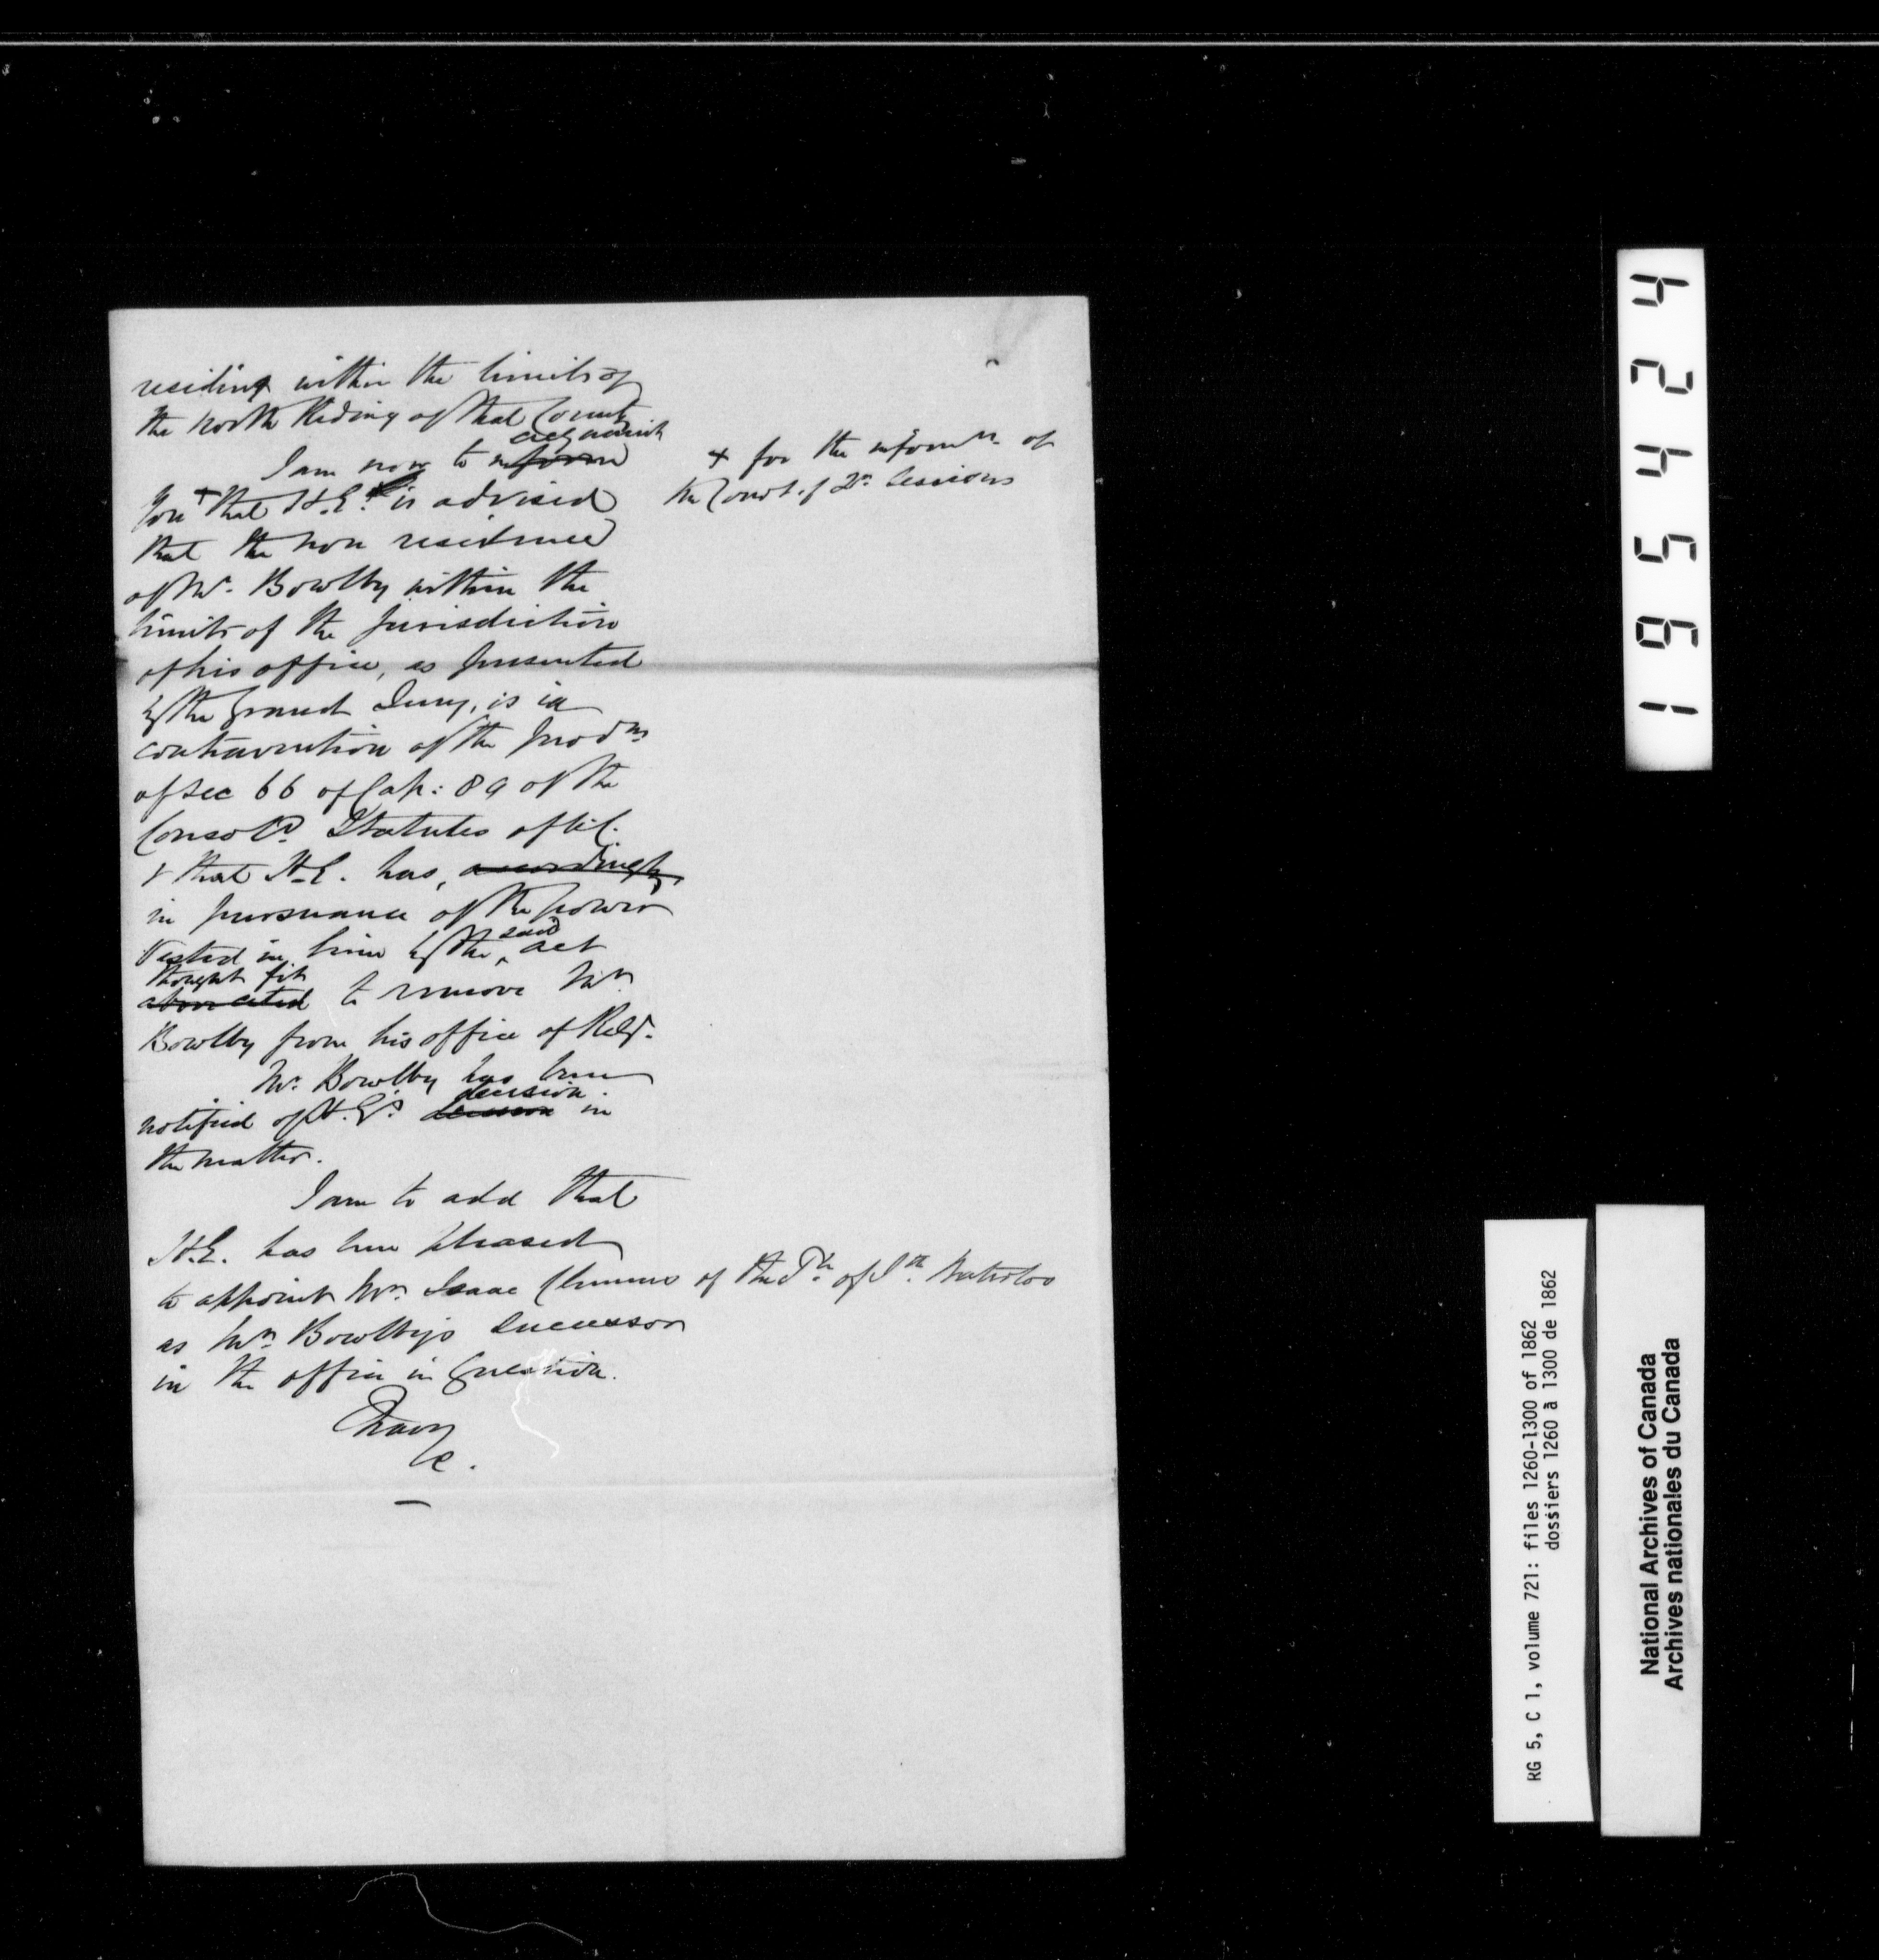 residing within the limits of
the North Riding of that County
acquaint
I am now to inform
you + that H.E. is advised
+ for the informn. of
the Court of Qr. Sessions
that the non residence
of Mr. Bowlby within the
limits of the jurisdiction
of his office, as presented
by the Grand Jury, is in
contravention of the provns
of Sec 66 of Cap: 89 of the
Consold. Statutes of U.C.
& that H.E. has, accordingly,
in pursuance of the power
vested in him by the said act
thought fit
above cited to remove Mr.
Bowlby from his office of Regr.
Mr. Bowlby has been
decision
notified of H.E's decision in
the matter.
I am to add that
H.E. has been pleased
to appoint Mr. Isaac Clemens of the Tp. of Waterloo
as Mr. Bowlby's successor
in the office in question.
I have
&c.
195424
RG 5, C 1, volume 721: files 1260-1300 of 1862
dossiers 1260 à 1300 de 1862
National Archives of Canada
Archives nationales du Canada